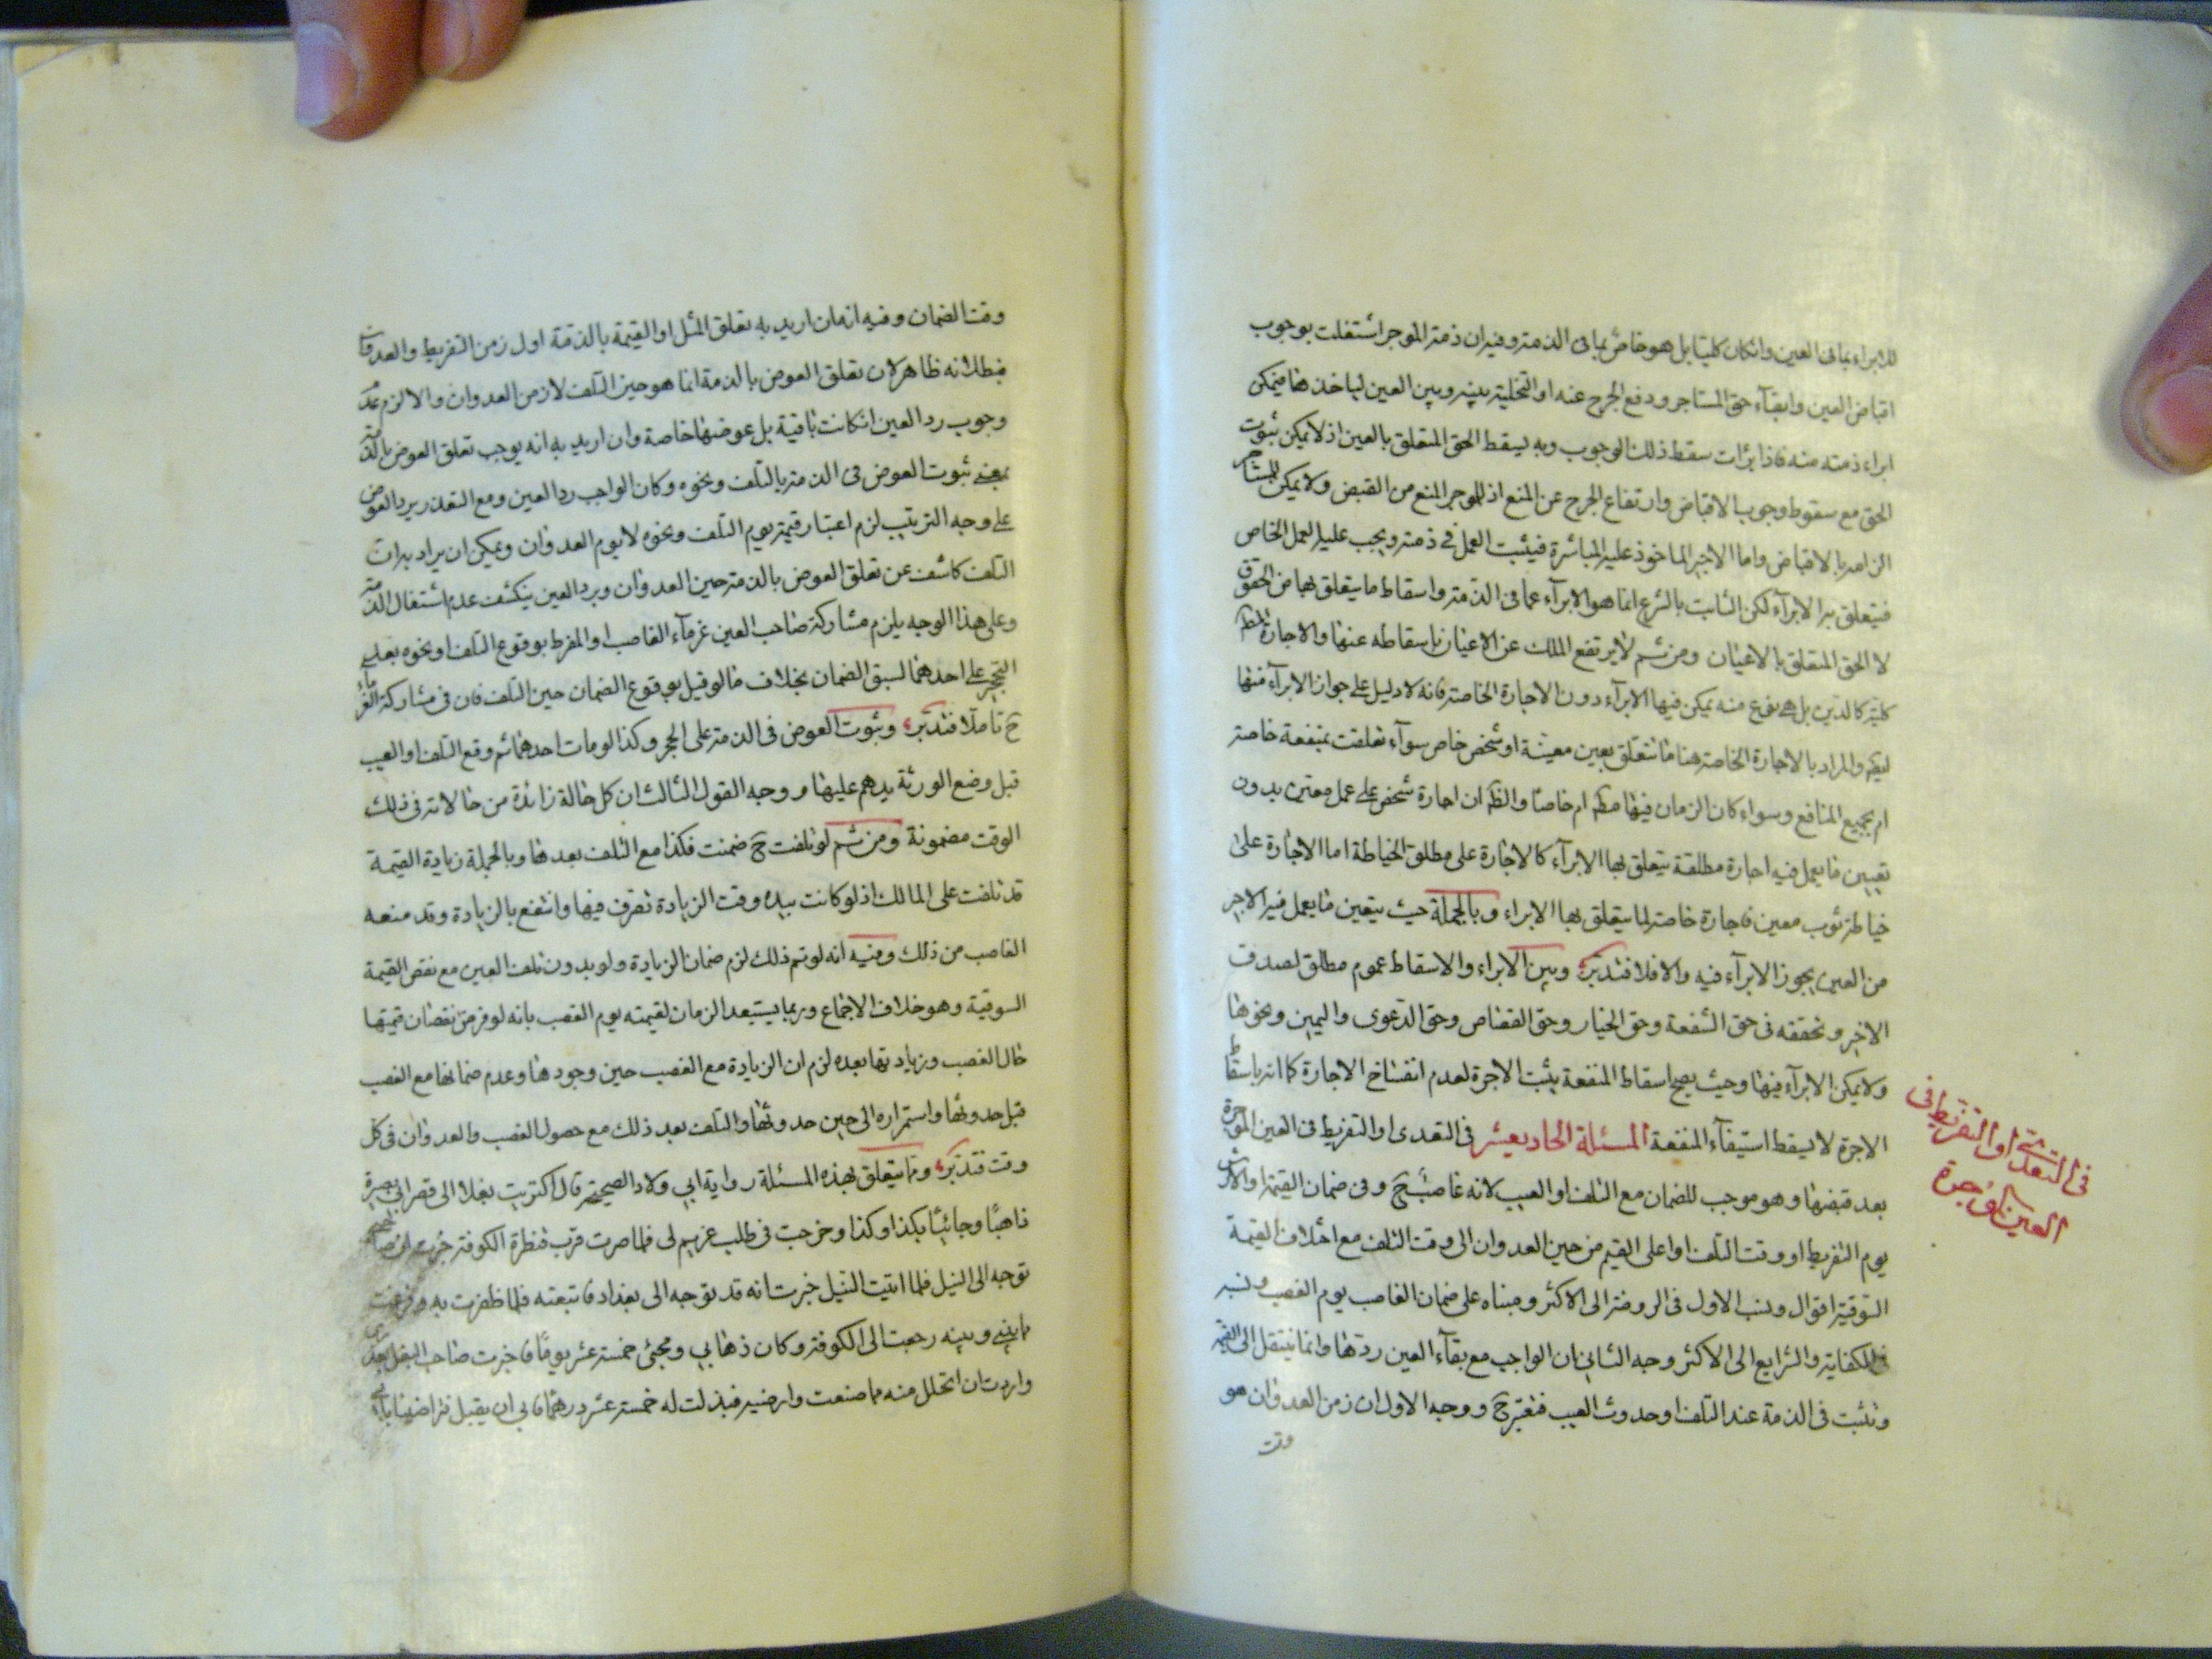 للابراء بما فى العين وان كان كليتا بل هو خاص بما فى الذمة وفيه ان ذمة الموجر اشتغلت بوجوب
اقباض العين وابقآء حق المستاجر ودفع الجرح عنه او التخلية بينه وبين العين لياخذها فيمكن
ابراء ذمته منه فاذا برأت سقط ذلك الوجوب وبه ليسقط الحق المتعلق بالعين اذ لا يمكن ثبوت
الحق مع سقوط وجوب الاقباض وارتفاع الجرح عن المنع اذ للموجر المنع من القبض ولا يمكن للمستاجر
الزامه بالاقباض واما الاجير الماخوذ عليه المباشرة فيثبت العمل فى ذمته ويجب عليه العمل الخاص
فيتعلق به الابرآء لكن الثابت بالشرع انما هو الابرآء عما فى الذمة واسقاط ما يتعلق بها من الحقوق
لا الحق المتعلق بالاعيان ومن ثم لا يرتفع الملك عن الاعيان باسقاطه عنها والاجارة
كلية كالدين بل هى نوع منه يمكن فيها الابرآء دون الاجارة الخاصة فانه لا دليل على جواز الابرآء منها
والمراد بالاجارة الخاصة هنا ما تتعلق بعين معينة او شخص خاص سوآء تعلقت بمنفعة خاصة
ام بجميع المنافع وسواء كان الزمان فيها مط ام خاصا والظ ان اجارة شخص على عمل معين بدون
تعيين ما يعمل فيه اجارة مطلقة يتعلق بها الابرآء كالاجارة على مطلق الخياطة اما الاجارة على
خياطة ثوب معين فاجارة خاصة لما يتعلق بها الابراء وبالجملة حيث يتعين ما يعمل فيه الاجير
من العين يجوز الابرآء فيه والا فلا فتدبر وبين الابراء والاسقاط عموم مطلق لصدق
الاخر وتحققه فى حق الشفعة وحق الخيار وحق القصاص وحق الدعوى واليمين ونحوها
ولا يمكن الابرآء فيها وحيث يصح اسقاط المنفعة يثبت الاجرة لعدم انفساخ الاجارة كما انه باسقاط
الاجرة لا يسقط استيفآء المنفعة المسئلة الحاديعشر فى التعدى او التفريط فى العين الموجرة
بعد قبضها وهو موجب للضمان مع التلف او العيب لانه غاصب ح وفى ضمان القيمة او الارش
يوم التفريط او وقت التلف او اعلى القيم من حين العدوان الى وقت التلف مع اختلاف القيمة
السوقية اقوال ونسب الاول فى الروضة الى الاكثر ومبناه على ضمان الغاصب يوم الغصب ونسبه
فى الكفاية والشرايع الى الاكثر وجه الثانى ان الواجب مع بقآء العين ردها وانما ينتقل الى القيمة
وتثبت فى الذمة عند التلف او حدوث العيب فتعتبر ح ووجه الاول ان زمن العدوان هو
وقت
فى التعدى او التفريط فى
العين الموجرة
وقت الضمان وفيه انه ان اريد به تعلق المثل او القيمة بالذمة اول زمن التفريط والعدوان
فبطلانه ظاهر لان تعلق العوض بالذمة انما هو حين التلف لا زمن العدوان والا لزم عدم
وجوب رد العين ان كانت باقية بل عوضها خاصة وان اريد به انه يوجب تعلق العوض بالذمة
بمعنى ثبوت العوض فى الذمة بالتلف ونحوه وكان الواجب رد العين ومع التعذر يرد العوض
على وجه الترتيب لزم اعتبار قيمته يوم التلف ونحوه لا يوم العدوان ويمكن ان يراد به ان
التلف كاشف عن تعلق العوض بالذمة حين العدوان وبرد العين ينكشف عدم اشتغال الذمة
وعلى هذا الوجه يلزم مشاركة صاحب العين غرمآء الغاصب او المفرط بوقوع التلف او نحوه بعد
التحجير على احدهما لسبق الضمان بخلاف ما لو قيل بوقوع الضمان حين التلف فان فى مشاركة الغرماء
ح تاملا فتدبر وثبوت العوض فى الذمة على الحجر وكذا لو مات احدهما ثم وقع التلف او العيب
قبل وضع الورثة يدهم عليها ووجه القول الثالث ان كل حالة زائدة من حالاته فى ذلك
الوقت مضمونة ومن ثم لو تلفت ح ضمنت فكذا مع التلف بعدها وبالجملة زيادة القيمة
قد تلفت على المالك اذ لو كانت بيده وقت الزيادة تصرف فيها وانتفع بالزيادة وقد منعه
الغاصب من ذلك وفيه انه لو تم ذلك لزم ضمان الزيادة ولو بدون تلف العين مع نقص القيمة
السوقية وهو خلاف الاجماع وربما يستبعد الزمان لقيمته يوم الغصب بانه لو فرض نقصان قيمتها
حال الغصب وزيادتها بعده لزم ان الزيادة مع الغصب حين وجودها وعدم ضمانها مع الغصب
قبل حدوثها واستمراره الى حين حدوثها والتلف بعد ذلك مع حصول الغصب والعدوان فى كل
وقت فتدبر وما يتعلق بهذه المسئلة رواية ابى ولاد الصحيحة قال اكتريت بغلا الى قصر ابن
ذاهبا وجائيا بكذا وكذا وخرجت فى طلب غريم لى فلما صرت قرب قنطرة الكوفة خبرت ان
توجه الى النيل فلما اتيت النيل خبرت انه قد توجه الى بغداد فاتبعته فلما ظفرت به وفرغت
ما بينى وبينه رجعت الى الكوفة وكان ذهابى ومجيئى خمسة عشر يوما فاخبرت صاحب البغل
واردت ان اتحلل منه ما صنعت وارضيه فبذلت له خمسة عشر درهما فابى ان يقبل فتراضينا